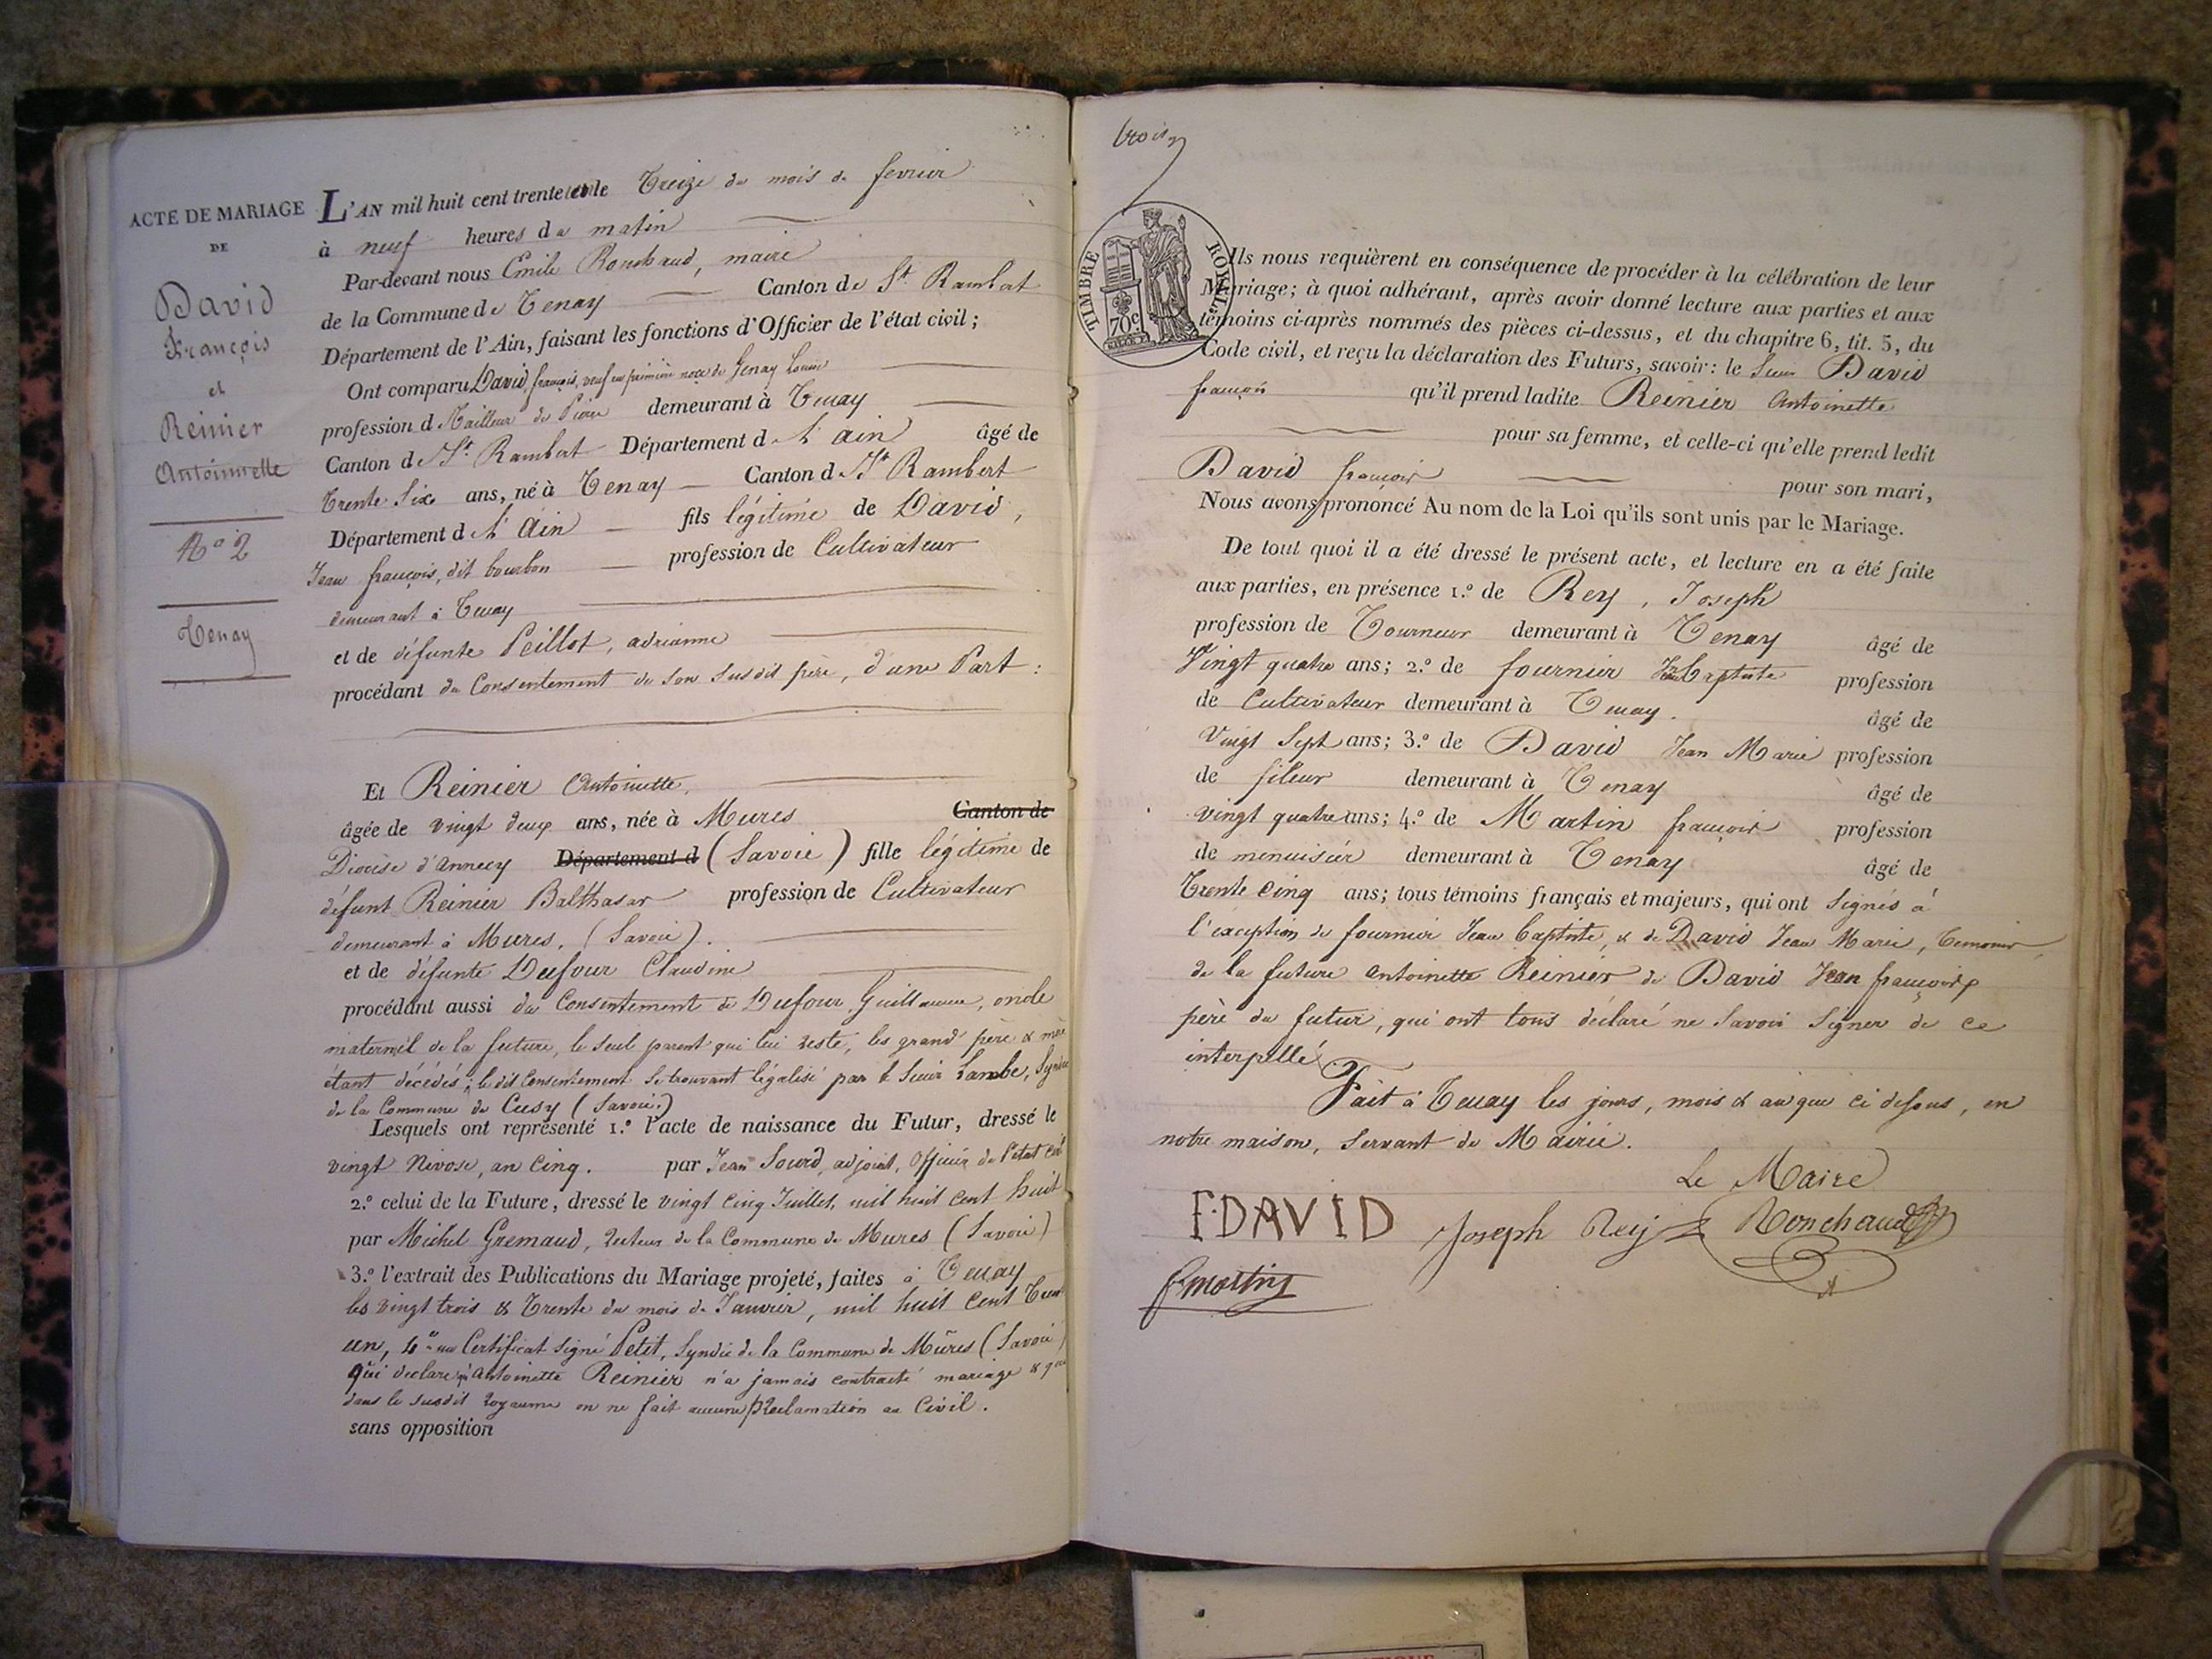 ACTE DE MARIAGE
DE
David
François
et
Reinier
Antoinette
N.o 2
Tenay
L'AN mil huit cent trente et le Treize du mois de fevrier
à neuf heures du matin
Par-devant nous Emile Ronchaud, maire
de la Commune de Tenay Canton de St. Rambert
Département de l'Ain, faisant les fonctions d'Officier de l'état civil;
Ont comparu David françois, veuf en première noce de Genay Louise
profession d Tailleur de Pierre demeurant à Tenay
Canton d St. Rambert Département d L'ain âgé de
Trente Six ans, né à Tenay Canton d St Rambert
Département d L'Ain fils légitime de David,
Jean françois, dit bourbon profession de Cultivateur
demeurant à Tenay
et de défunte Peillot, adrianne
procédant du Consentement de son susdit père, d'une Part :
Et Reinier Antoinette,
âgée de vingt deux ans, née à Mures Canton de
Diocèse d'Annecy Département d (Savoie) fille légitime de
défunt Reinier Balthasar profession de Cultivateur
demeurant à Mures, (Savoie).
et de défunte Dufour Claudine
procédant aussi du Consentement de Dufour Guillaume, oncle
maternel de la future, le seul parent qui lui reste, les grand père & mère
étant décédés; le dit Consentement se trouvant légalisé par le Sieur Lambe, Syndic
de la Commune de Cusy (Savoie.)
Lesquels ont représenté 1.º l'acte de naissance du Futur, dressé le
vingt Nivose, an Cinq. par Jean Sourd, adjoint, Officier de l'état civil
2.º celui de la Future, dressé le vingt Cinq Juillet, mil huit cent huit
par Michel Gremaud, Recteur de la Commune de Mures (Savoie)
3.º l'extrait des Publications du Mariage projeté, faites à Tenay
les vingt trois & Trente du mois de Janvier, mil huit Cent Trente
un, 4º un Certificat signé Petit, Syndic de la Commune de Mûres (Savoie)
qui declare qu'Antoinette Reinier n'a jamais contracté mariage & que
dans le susdit Royaume on ne fait aucune Proclamation au Civil.
sans opposition
trois
TIMBRE ROYAL
70c
Ils nous requièrent en conséquence de procéder à la célébration de leur
Mariage; à quoi adhérant, après avoir donné lecture aux parties et aux
témoins ci-après nommés des pièces ci-dessus, et du chapitre 6, tit. 5, du
Code civil, et reçu la déclaration des Futurs, savoir: le Sieur David
françois qu'il prend ladite Reinier Antoinette
pour sa femme, et celle-ci qu'elle prend ledit
David françois pour son mari,
Nous avons prononcé Au nom de la Loi qu'ils sont unis par le Mariage.
De tout quoi il a été dressé le présent acte, et lecture en a été faite
aux parties, en présence 1.º de Rey, Joseph
profession de Tourneur demeurant à Tenay âgé de
Vingt quatre ans; 2.º de fournier Jean Baptiste profession
de Cultivateur demeurant à Tenay. âgé de
Vingt Sept ans; 3.º de David Jean Marie profession
de fileur demeurant à Tenay âgé de
vingt quatre ans; 4.º de Martin françois profession
de menuisier demeurant à Tenay âgé de
Trente Cinq ans; tous témoins français et majeurs, qui ont Signés à
l'exception de fournier Jean baptiste, & de David Jean Marie, Temoins,
de la future Antoinette Reinier de David Jean françois
père du futur, qui ont tous déclaré ne Savoir Signer de ce
interpellé
Fait à Tenay les jours, mois & an que ci dessus, en
notre maison, Servant de Mairie.
Le Maire
F. DAVID Joseph Rey Ronchaud
fmartin